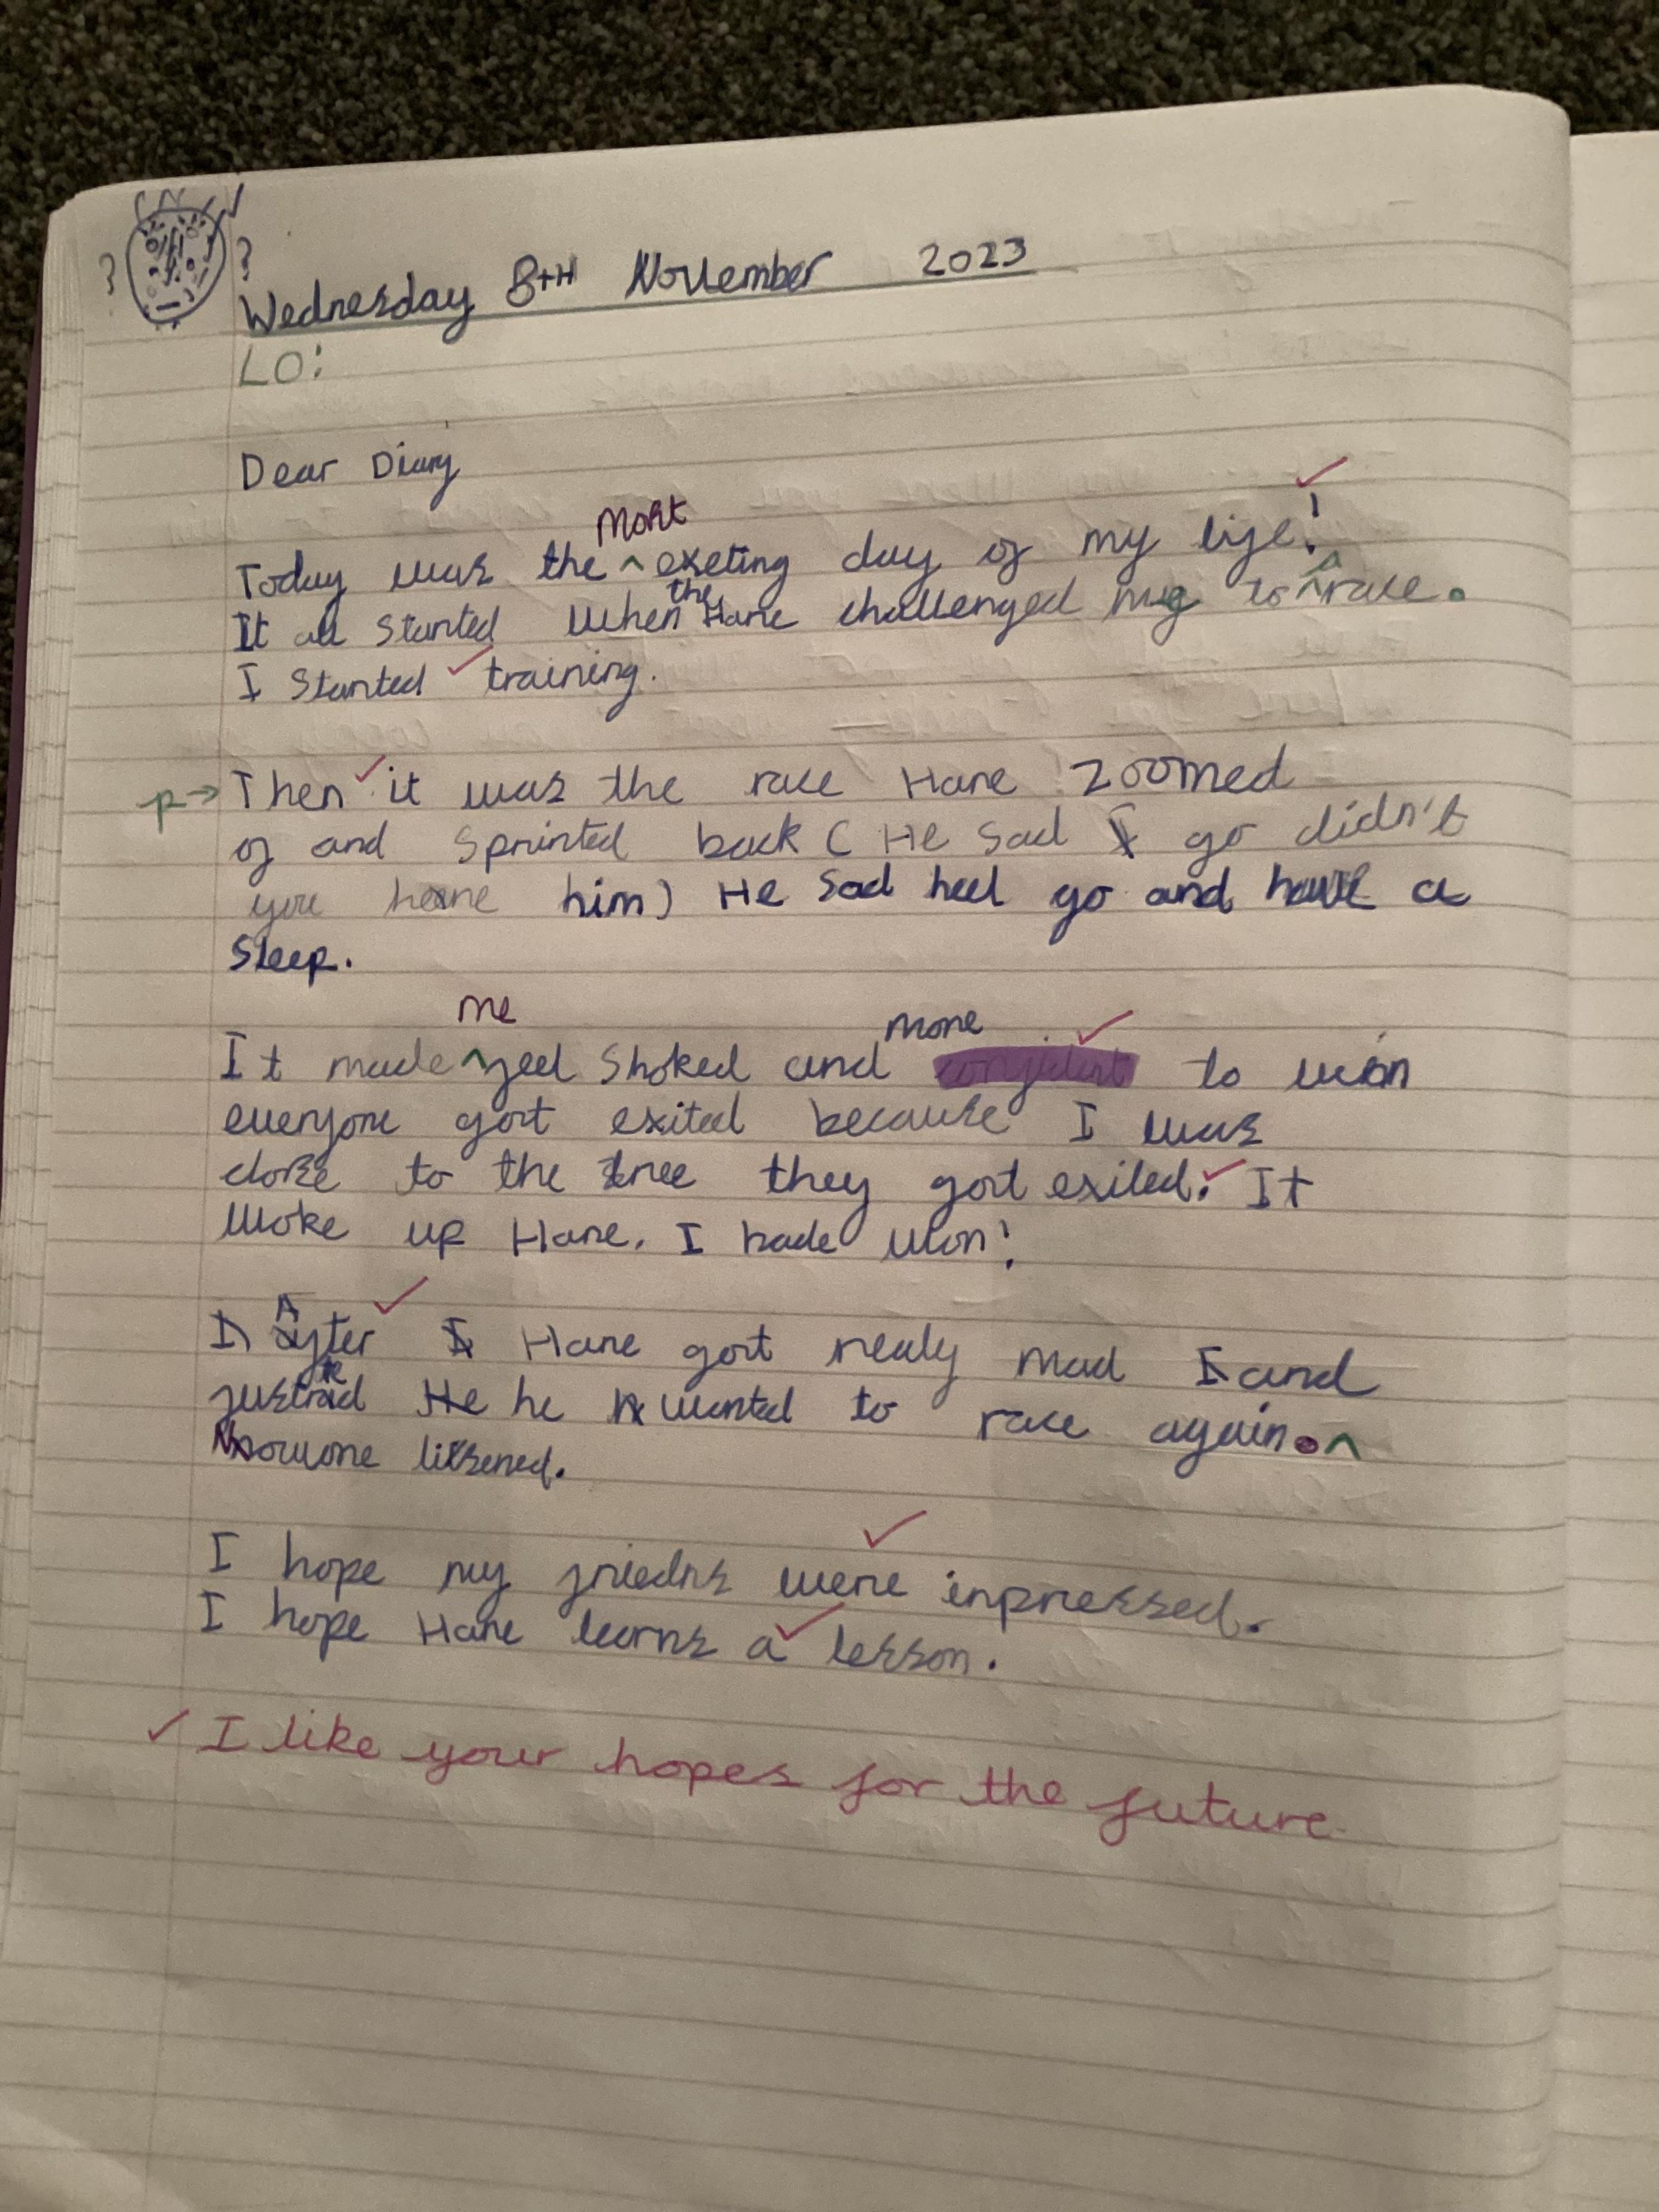 Wednesday 8TH November 2023
LO:
Dear Diary
Today was the most exeting day of my life!
It all started when the Hare challenged me to a race.
I started training.
p→ Then it was the race Hare zoomed
of and sprinted back ( He sad go didn't
you heare him) He sad heel go and have a
sleep.
It made me feel shoked and more confident to won
everyone gort exited because I was
close to the tree they gort exited. It
woke up Hare. I hade won!
After Hare gort realy mad and
he wanted to race again.
lissened.
I hope my friedns were inpressed.
I hope Hare learns a lesson.
✓ I like your hopes for the future.